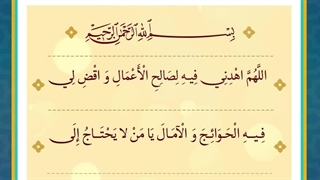 بِسْمِ اللهِ الرَّحْمٰنِ الرَّحِيْمِ
اللَّهُمَّ اهْدِنِي فِيهِ لِصَالِحِ الْأَعْمَالِ وَ اقْضِ لِي
فِيهِ الْحَوَائِجَ وَ الْآمَالَ يَا مَنْ لا يَحْتَاجُ إِلَى